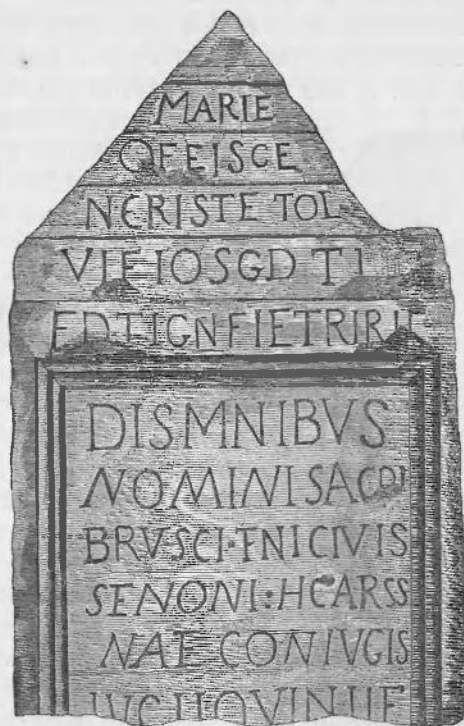 MARIE
OFEISCE
NCRISTE TOL
VIEIOSGD TI
FDTIGNFIETRIRII
DISMNIBVS
NOMINISACDI
BRVSCI·FNICIVIS
SENONI:HCARSS
NAT CONIVGIS